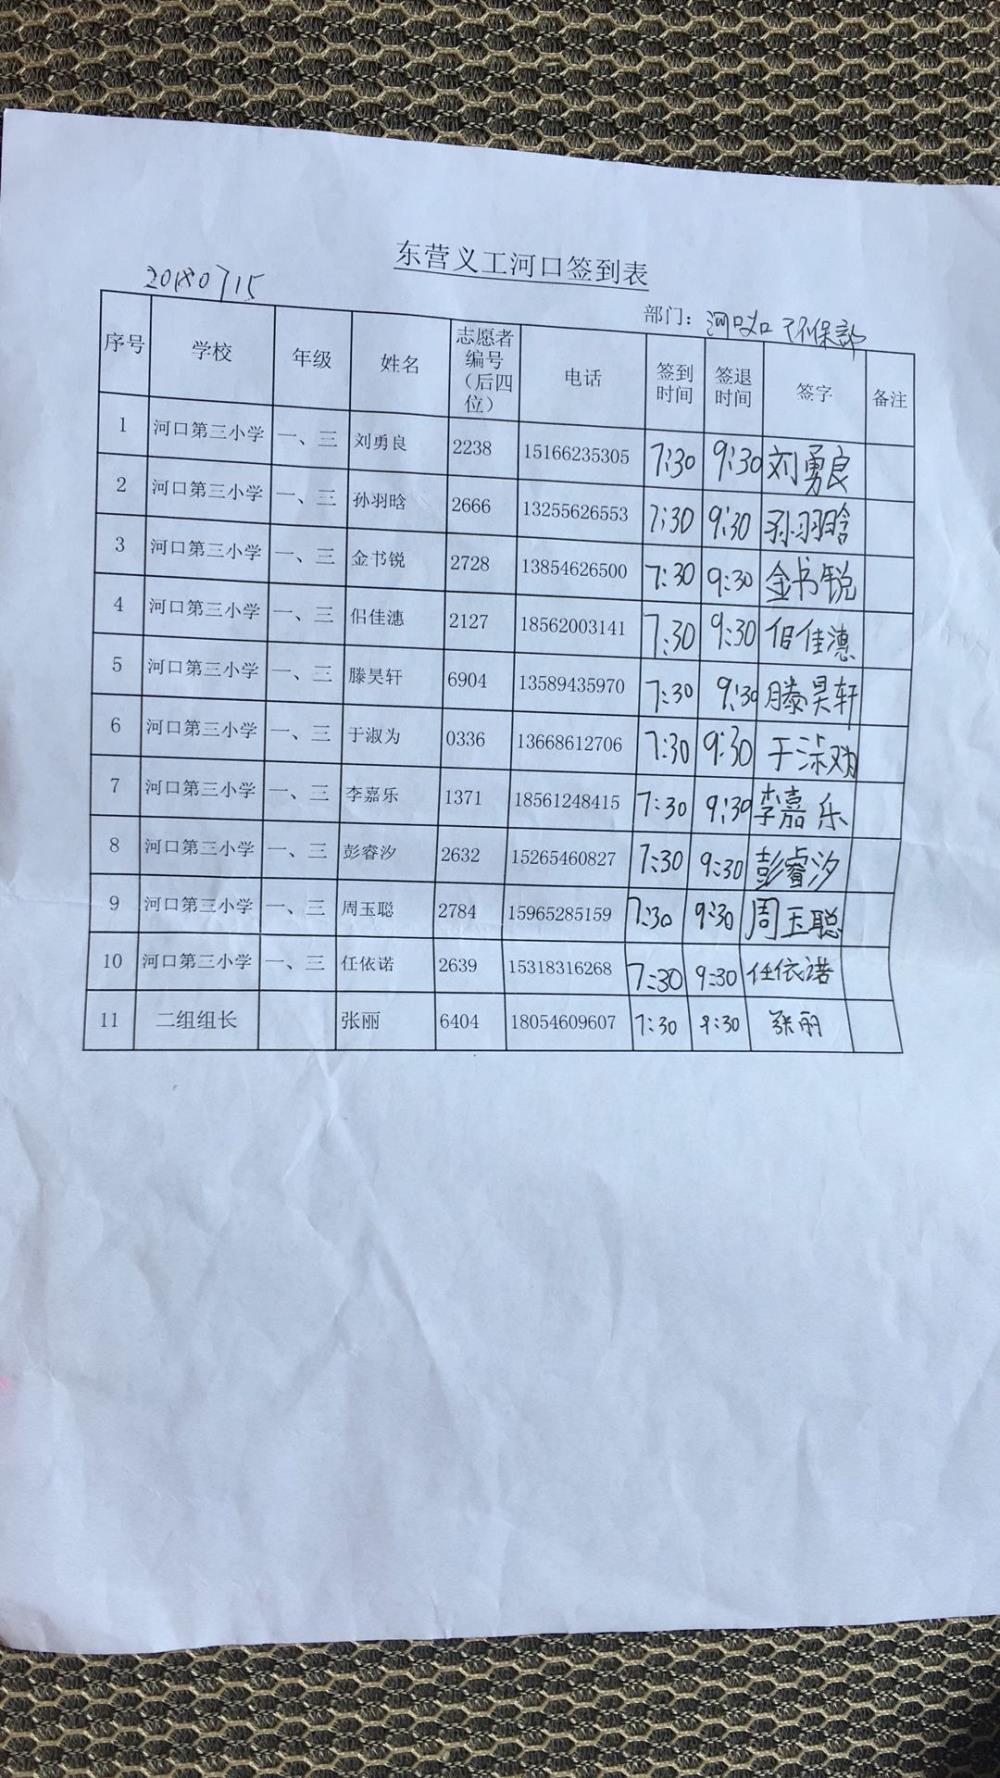 东营义工河口签到表
20180715
部门： 河口 环保部
序号 学校 年级 姓名 志愿者编号（后四位） 电话 签到时间 签退时间 签字 备注
1 河口第三小学 一、三 刘勇良 2238 15166235305 7:30 9:30 刘勇良
2 河口第三小学 一、三 孙羽晗 2666 13255626553 7:30 9:30 孙羽晗
3 河口第三小学 一、三 金书锐 2728 13854626500 7:30 9:30 金书锐
4 河口第三小学 一、三 佀佳潓 2127 18562003141 7:30 9:30 佀佳潓
5 河口第三小学 一、三 滕昊轩 6904 13589435970 7:30 9:30 滕昊轩
6 河口第三小学 一、三 于淑为 0336 13668612706 7:30 9:30 于淑为
7 河口第三小学 一、三 李嘉乐 1371 18561248415 7:30 9:30 李嘉乐
8 河口第三小学 一、三 彭睿汐 2632 15265460827 7:30 9:30 彭睿汐
9 河口第三小学 一、三 周玉聪 2784 15965285159 7:30 9:30 周玉聪
10 河口第三小学 一、三 任依诺 2639 15318316268 7:30 9:30 任依诺
11 二组组长 张丽 6404 18054609607 7:30 9:30 张丽